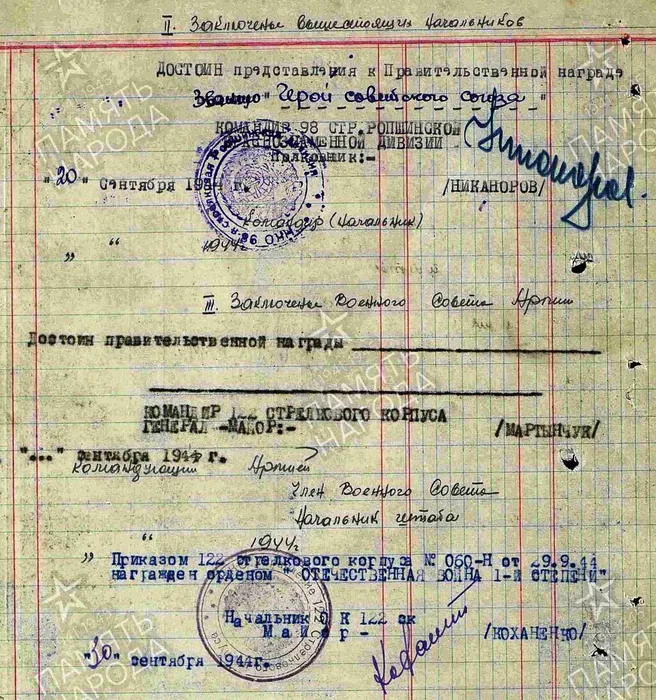 II. Заключенье вышестоящих начальников
ДОСТОИН представления к Правительственной награде
Званию "Герой советского союза"
КОМАНДИР 98 СТР.РОПШИНСКОЙ
КРАСНОЗНАМЕННОЙ ДИВИЗИИ
Полковник:-
"20" Сентября 1944 г. /НИКАНОРОВ/
Командир (начальник)
" " 1944г
III. Заключенье Военного Совета Армии
Достоин правительственной награды
КОМАНДИР 122 СТРЕЛКОВОГО КОРПУСА
ГЕНЕРАЛ-МАЙОР:- /МАРТЫНЧУК/
"..." сентября 1944 г.
Командующий Армией
Член Военного Совета
Начальник штаба
" " 1944г
Приказом 122 стрелкового корпуса № 060-Н от 29.9.44
награжден орденом " ОТЕЧЕСТВЕННАЯ ВОЙНА 1-Й СТЕПЕНИ"
Начальник О К 122 ск
Майор - /КОХАНЕНКО/
"30" сентября 1944г.
ПАМЯТЬ НАРОДА